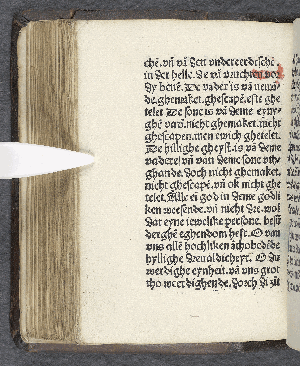 chē. vñ vā den vndereerdeschē
in der helle. De vā vruchten vor
dy beuē. De vader is vā nemā
de. ghemaket. ghescapē. efte ghe
telet De sone is vā deme eyny
ghē vad. nicht ghemaket. nicht
ghescapen. men ewich ghetelet.
De hillighe gheyst. is vā deme
vadere vñ van deme sone vth
ghande. Doch nicht ghemaket.
nicht ghescapē. vñ ok nicht ghe
telet. Alle ein god in deme godli
ken wesende. vñ nicht de. wol
dat eyne iewelke persone. besū
derghē eghendom heft. O van
vns allē hochliken āthobedēde
hyllighe dreualdicheyt. O du
werdighe eynheit. vā vns grot
tho werdighende. Dorch di zūt